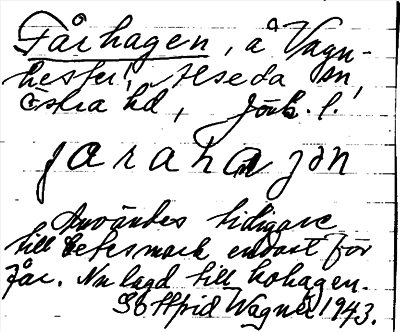 Fårhagen, å Vagn-
hester, Hseda sn,
Östra hd, Jönk. l.
faraha jon
Användes tidigare
till betesmark endast för
får. Nu lagd till kohagen.
Gottfrid Wagner 1943.